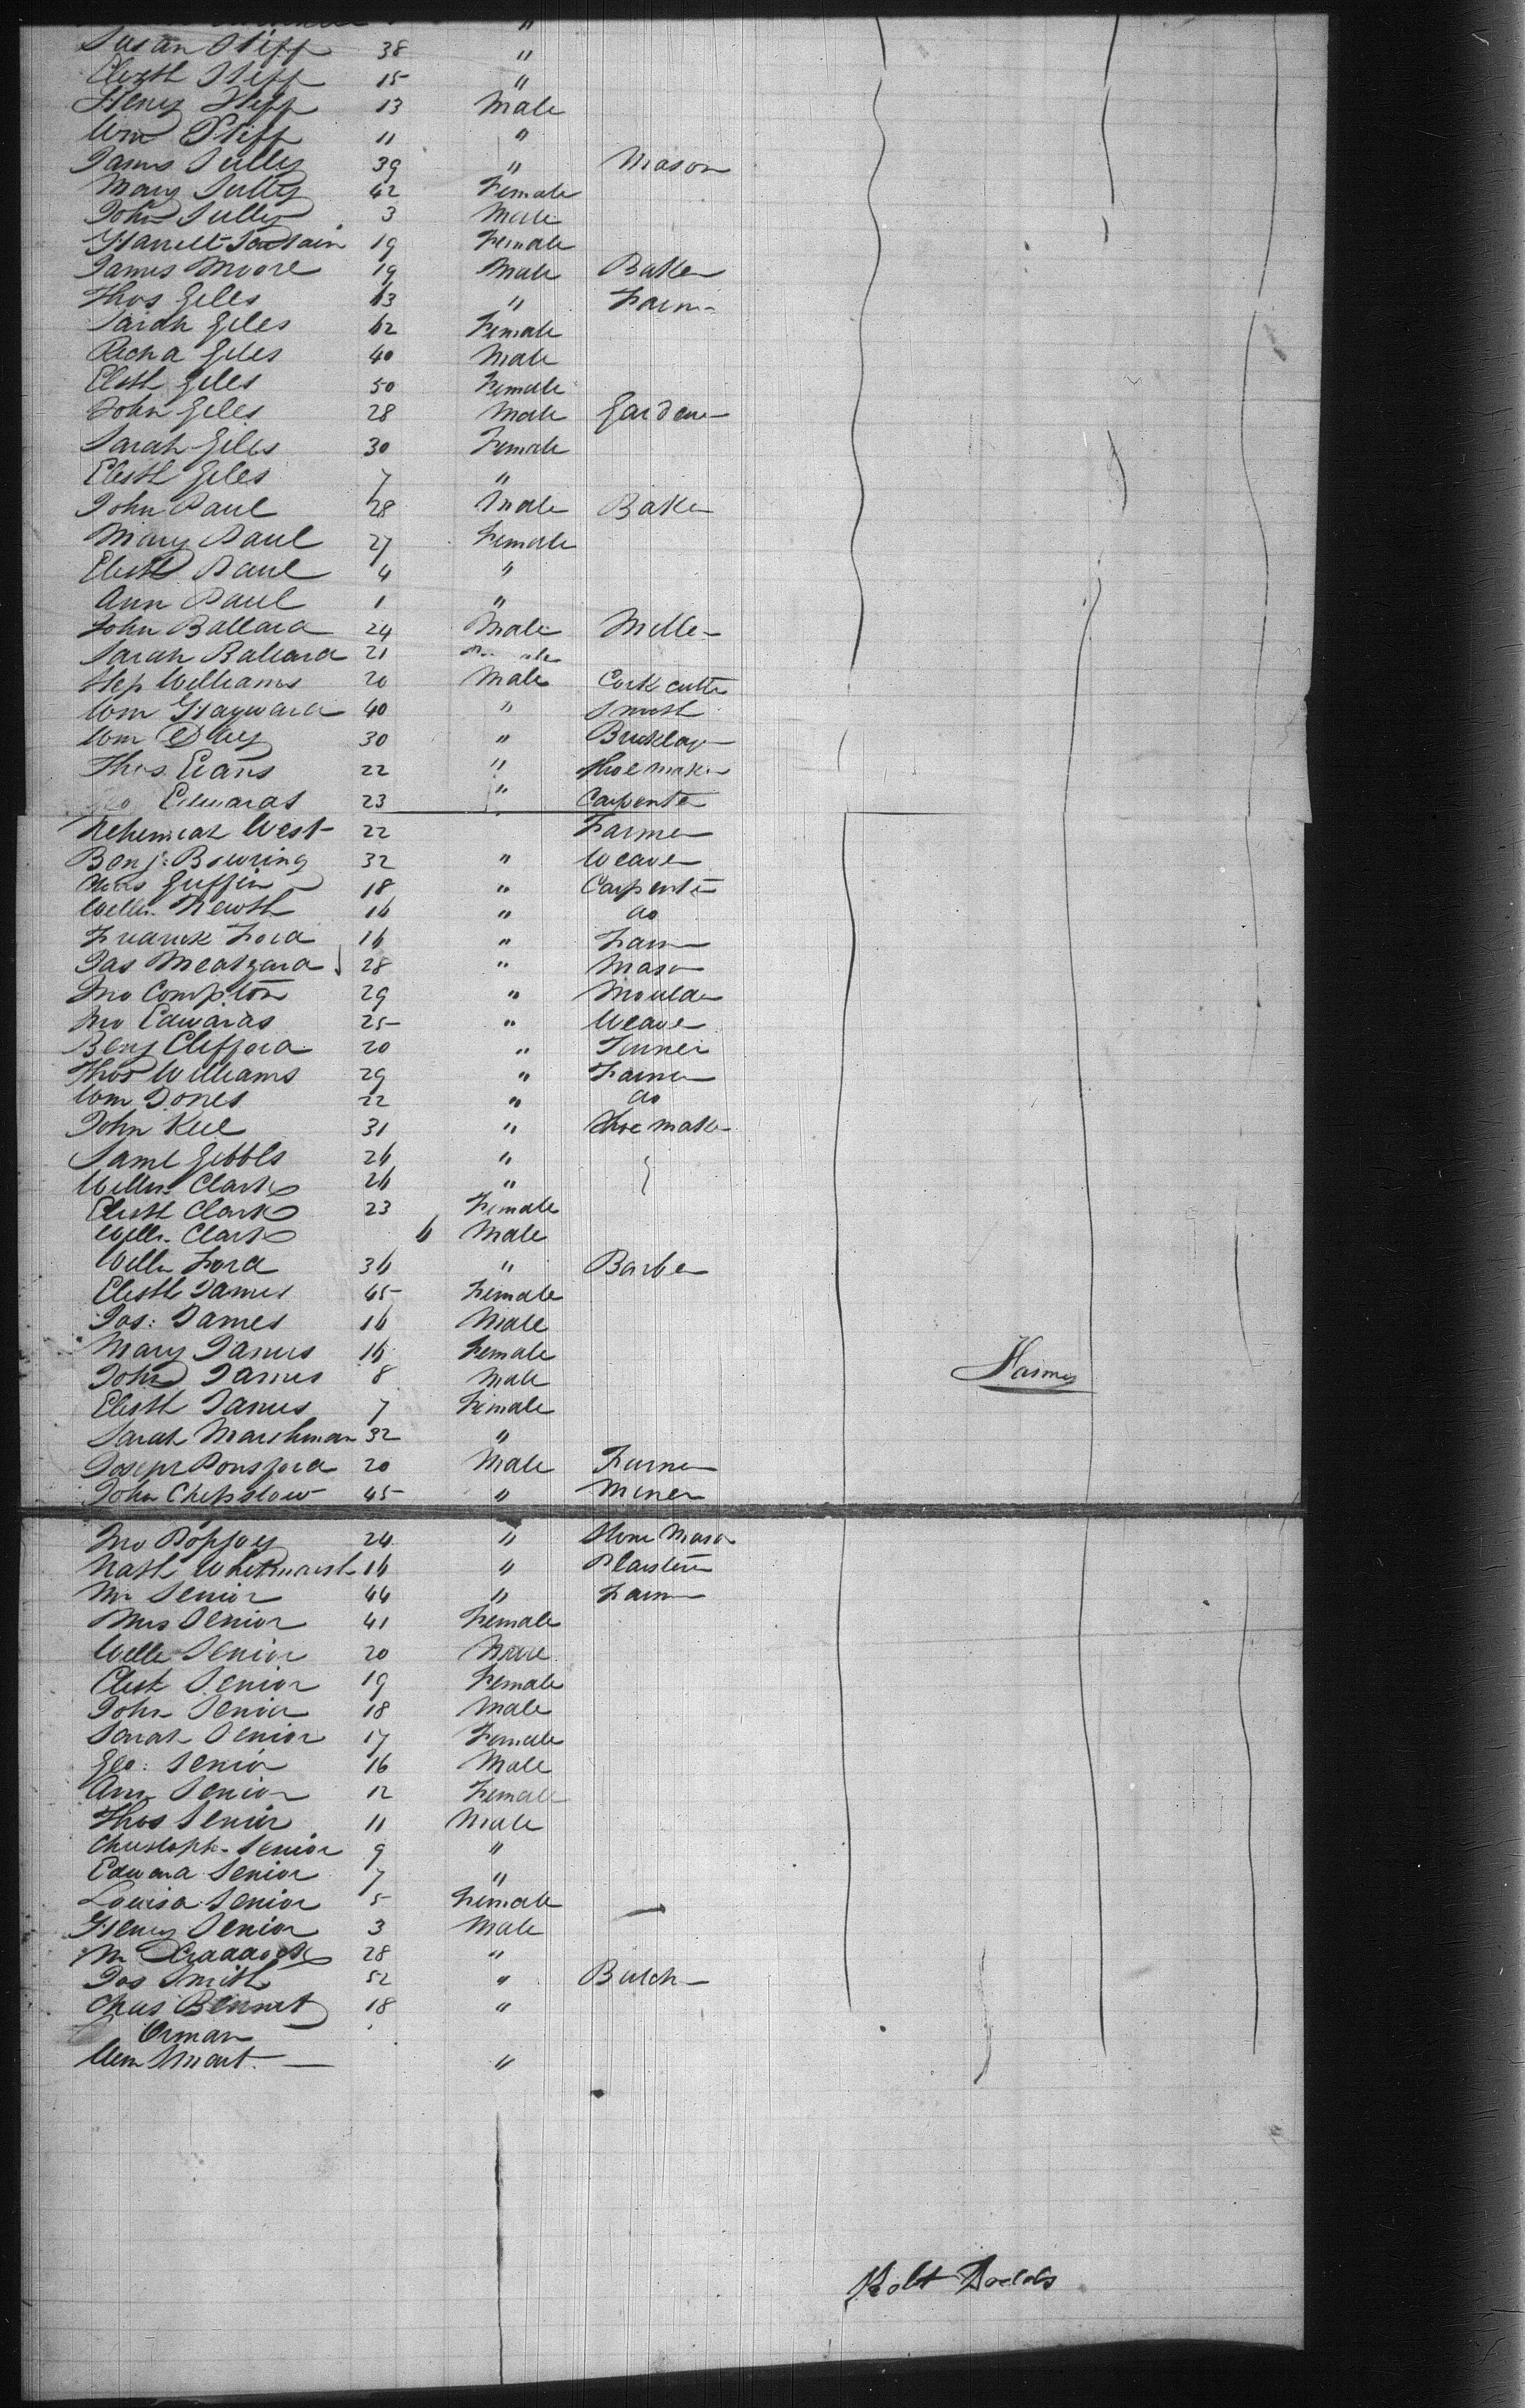 "
Susan Stiff 38 "
Elizth Stiff 15 "
Henry Stiff 13 Male
Wm Stiff 11 "
James Sully 39 " Mason
Mary Sully 42 Female
John Sully 3 Male
Harriet 19 Female
James Moore 19 Male Baker
Thos Giles 63 " Farmr
Sarah Giles 62 Female
Richd Giles 40 Male
Elisth Giles 50 Female
John Giles 28 Male Gardener
Sarah Giles 30 Female
Elisth Giles 7 "
John Paul 28 Male Baker
Mary Paul 27 Female
Elisth Paul 4 "
Ann Paul 1 "
John Ballard 24 Male Miller
Sarah Ballard 21 Female
Step Williams 20 Male Cork cutter
Wm Hayward 40 " Smith
Wm Davy 30 " Bricklayer
Thos. Evans 22 " Shoemaker
Geo Edwards 23 " Carpenter
Nehemiah West 22 Farmer
Benj: Bowring 32 " Weaver
Chas Griffin 18 " Carpenter
Willm Newth 16 " do
Fredrick Ford 16 " Farmr
Jas 28 " Mason
Jno Compton 29 " Moulder
Jno Edwards 25 " Weaver
Benj Clifford 20 " Turner
Thos Williams 29 " Farmer
Wm Jones 22 " do
John Keel 31 " Shoe maker
Saml Gibbls 26 "
Willm Clark 26 "
Elisth Clark 23 Female
Willm Clark 6 Male
Willm Ford 36 " Barber
Elisth James 45 Female
Jos: James 16 Male
Mary James 16 Female
John James 8 Male
Harmer
Elisth James 7 Female
Sarah Marshman 32 "
Joseph Ponsford 20 Male Turner
John Chepslow 45 " Miner
Jno Popjoy 24 " Stone Mason
Nathl Whitmarsh 16 " Plaisterer
Mr Senior 44 " Farmr
Mrs Senior 41 Female
Willm Senior 20 Male
Elist Senior 19 Female
John Senior 18 Male
Sarah Senior 17 Female
Geo: Senior 16 Male
Ann Senior 12 Female
Thos Senior 11 Male
Christoph. Senior 9 "
Edward Senior 7 "
Louisa Senior 5 Female
Henry Senior 3 Male
Mr Craddock 28 "
Jos Smith 52 " Butcher
Chas Bennet 18 "
Orman
Wm Smart. — "
Robt Dodds